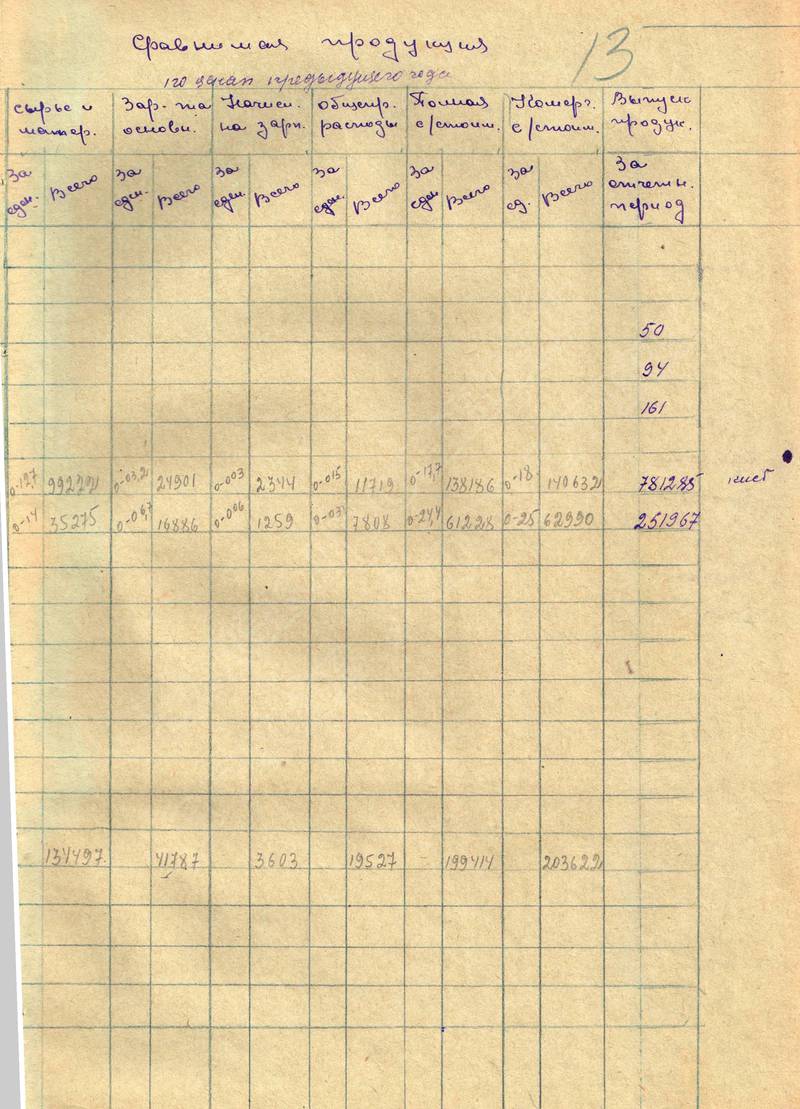 13
Сравнимая продукция
по ценам предыдущего года
сырье и Зар. та Начисл. общепр. Полная Комерч. Выпуск
матер. основн. на зарп. расходы с/стоим. с/стоим. продук.
За един. Всего За един. Всего За един. Всего За един. Всего За един Всего За ед. Всего За отчетн. период
50
94
161
0-12,7 99222 0-03,2 24901 0-003 2344 0-015 11719 0-17,7 138186 0-18 140632 781285
0-14 35275 0-06,7 16886 0-006 1259 0-03 7808 0-24,4 61228 0-25 62990 251967
134497 41787 3603 19527 199414 203622